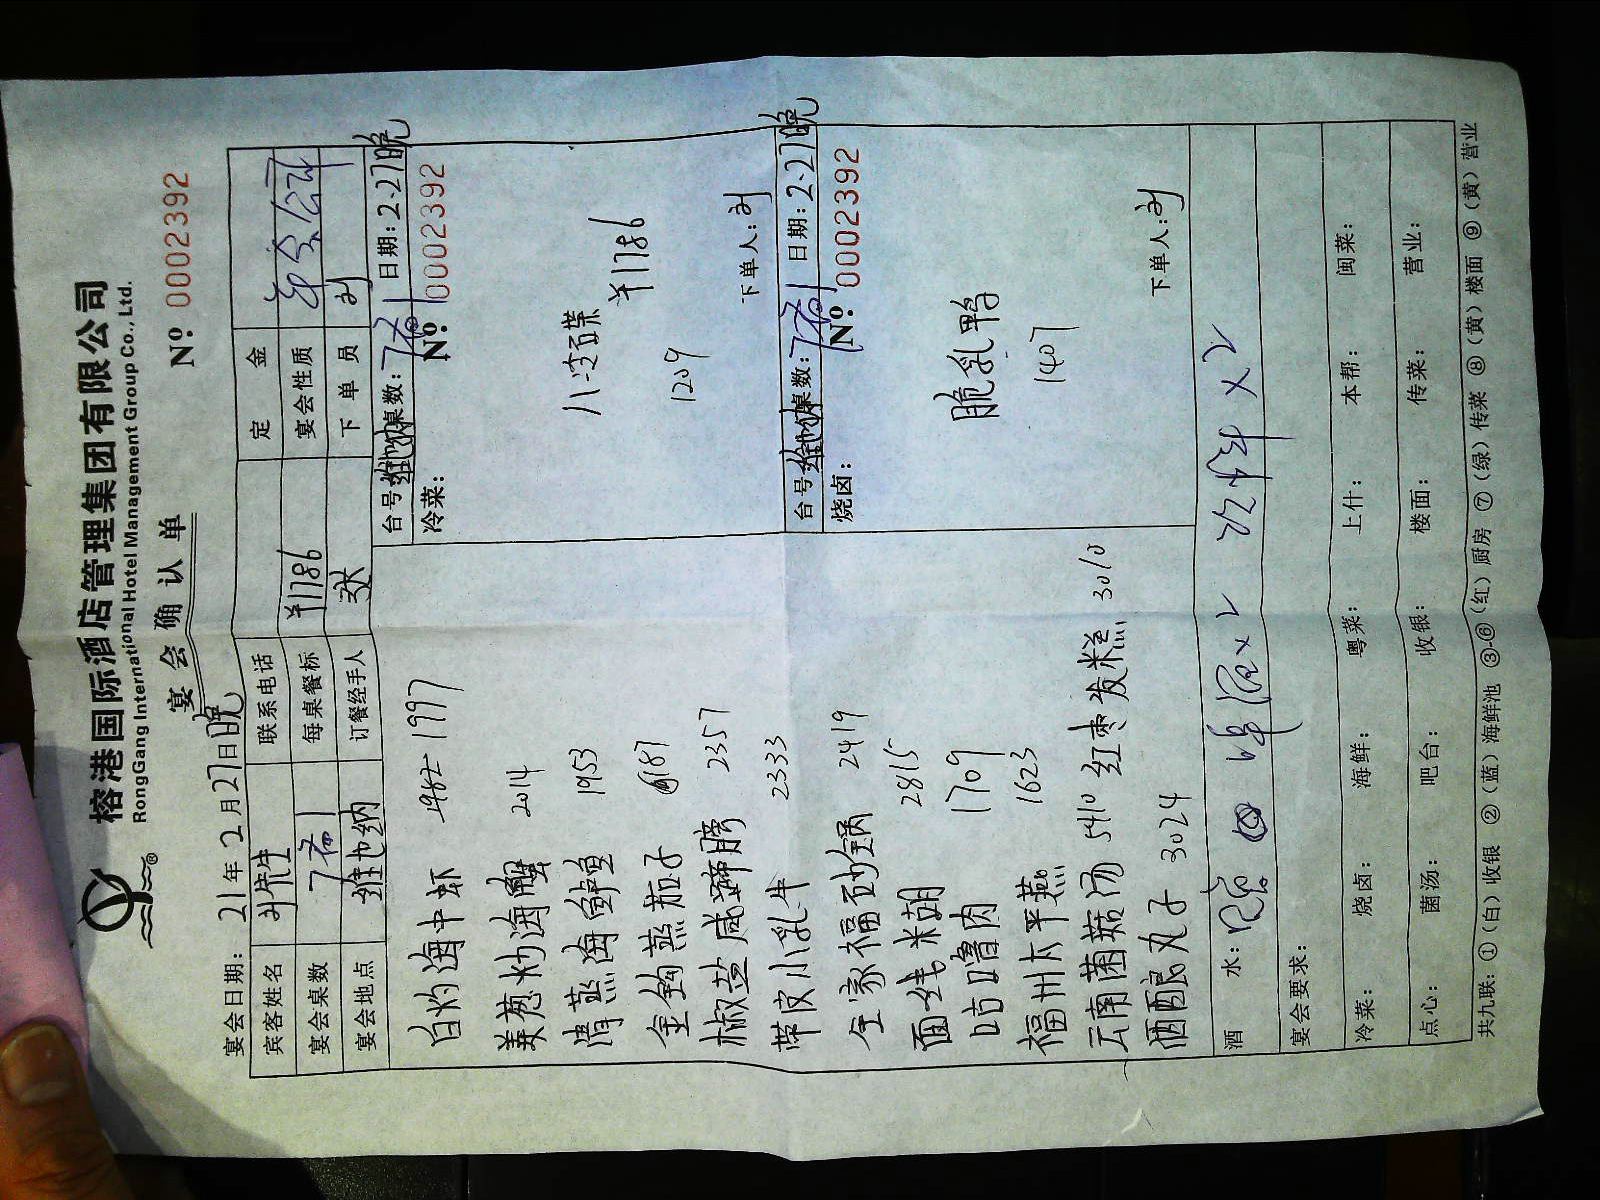 榕港国际酒店管理集团有限公司
RongGang International Hotel Management Group Co., Ltd.
宴会确认单
№ 0002392
宴会日期：21年2月27日晚
宾客姓名 联系电话 定金
宴会桌数 7备1 每桌餐标 ¥1786 宴会性质
宴会地点 维也纳 订餐经手人 下单员 刘
白灼海中虾 1997
姜葱炒海蟹 2014
清蒸海鲈鱼 1953
金钩蒸茄子 6187
椒盐咸蹄膀 2357
带皮小乳牛 2333
全家福砂锅 2419
面线糊 2815
咕噜肉 1709
福州太平燕 1623
云南菌菇汤 5410 红枣发糕 3010
酒酿丸子 3024
台号 维也纳 桌数：7备1 日期：2.27晚
冷菜： № 0002392
八冷碟
¥1786
1209
下单人：刘
台号 维也纳 桌数：7备1 日期：2.27晚
烧卤： № 0002392
脆乳鸭
1407
下单人：刘
酒水：
宴会要求：
冷菜： 烧卤： 海鲜： 粤菜： 上什： 本帮： 闽菜：
点心： 菌汤： 吧台： 收银： 楼面： 传菜： 营业：
共九联：①（白）收银 ②（蓝）海鲜池 ③-⑥（红）厨房 ⑦（绿）传菜 ⑧（黄）楼面 ⑨（黄）营业